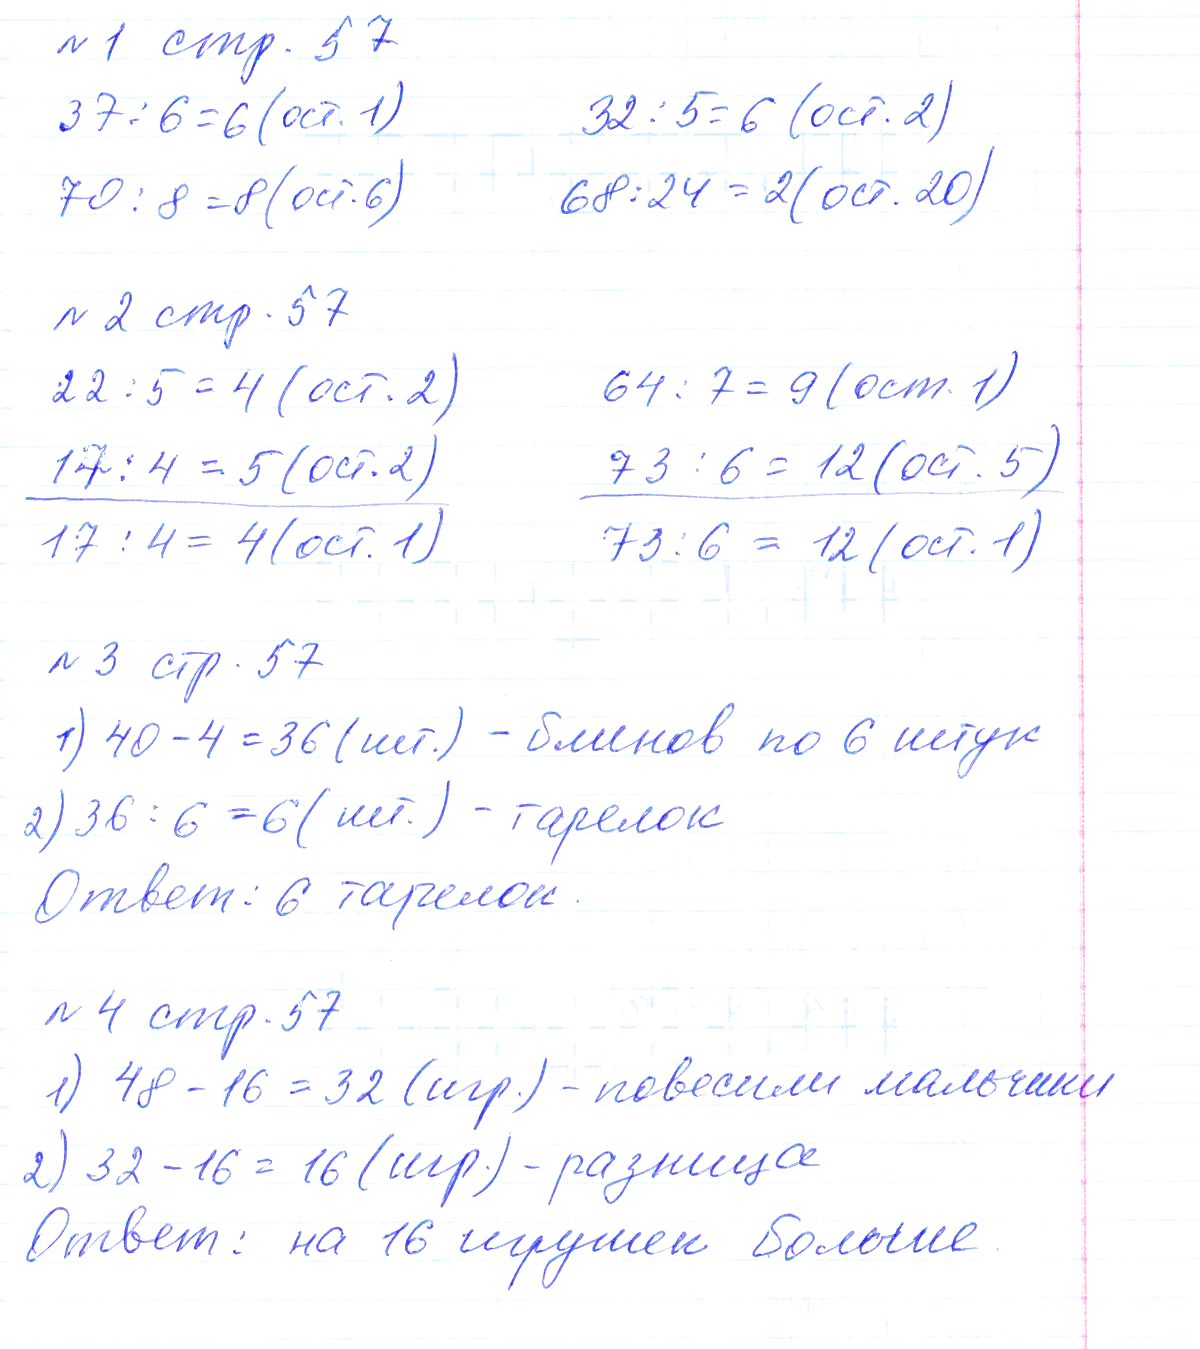 №1 стр. 57
37:6=6(ост.1) 32:5=6(ост.2)
70:8=8(ост.6) 68:24=2(ост.20)
№2 стр. 57
22:5=4(ост.2) 64:7=9(ост.1)
17:4=5(ост.2) 73:6=12(ост.5)
17:4=4(ост.1) 73:6=12(ост.1)
№3 стр. 57
1) 40-4=36(шт.) - блинов по 6 штук
2) 36:6=6(шт.) - тарелок
Ответ: 6 тарелок.
№4 стр. 57
1) 48-16=32(игр.) - повесили мальчики
2) 32-16=16(игр.) - разница
Ответ: на 16 игрушек больше.